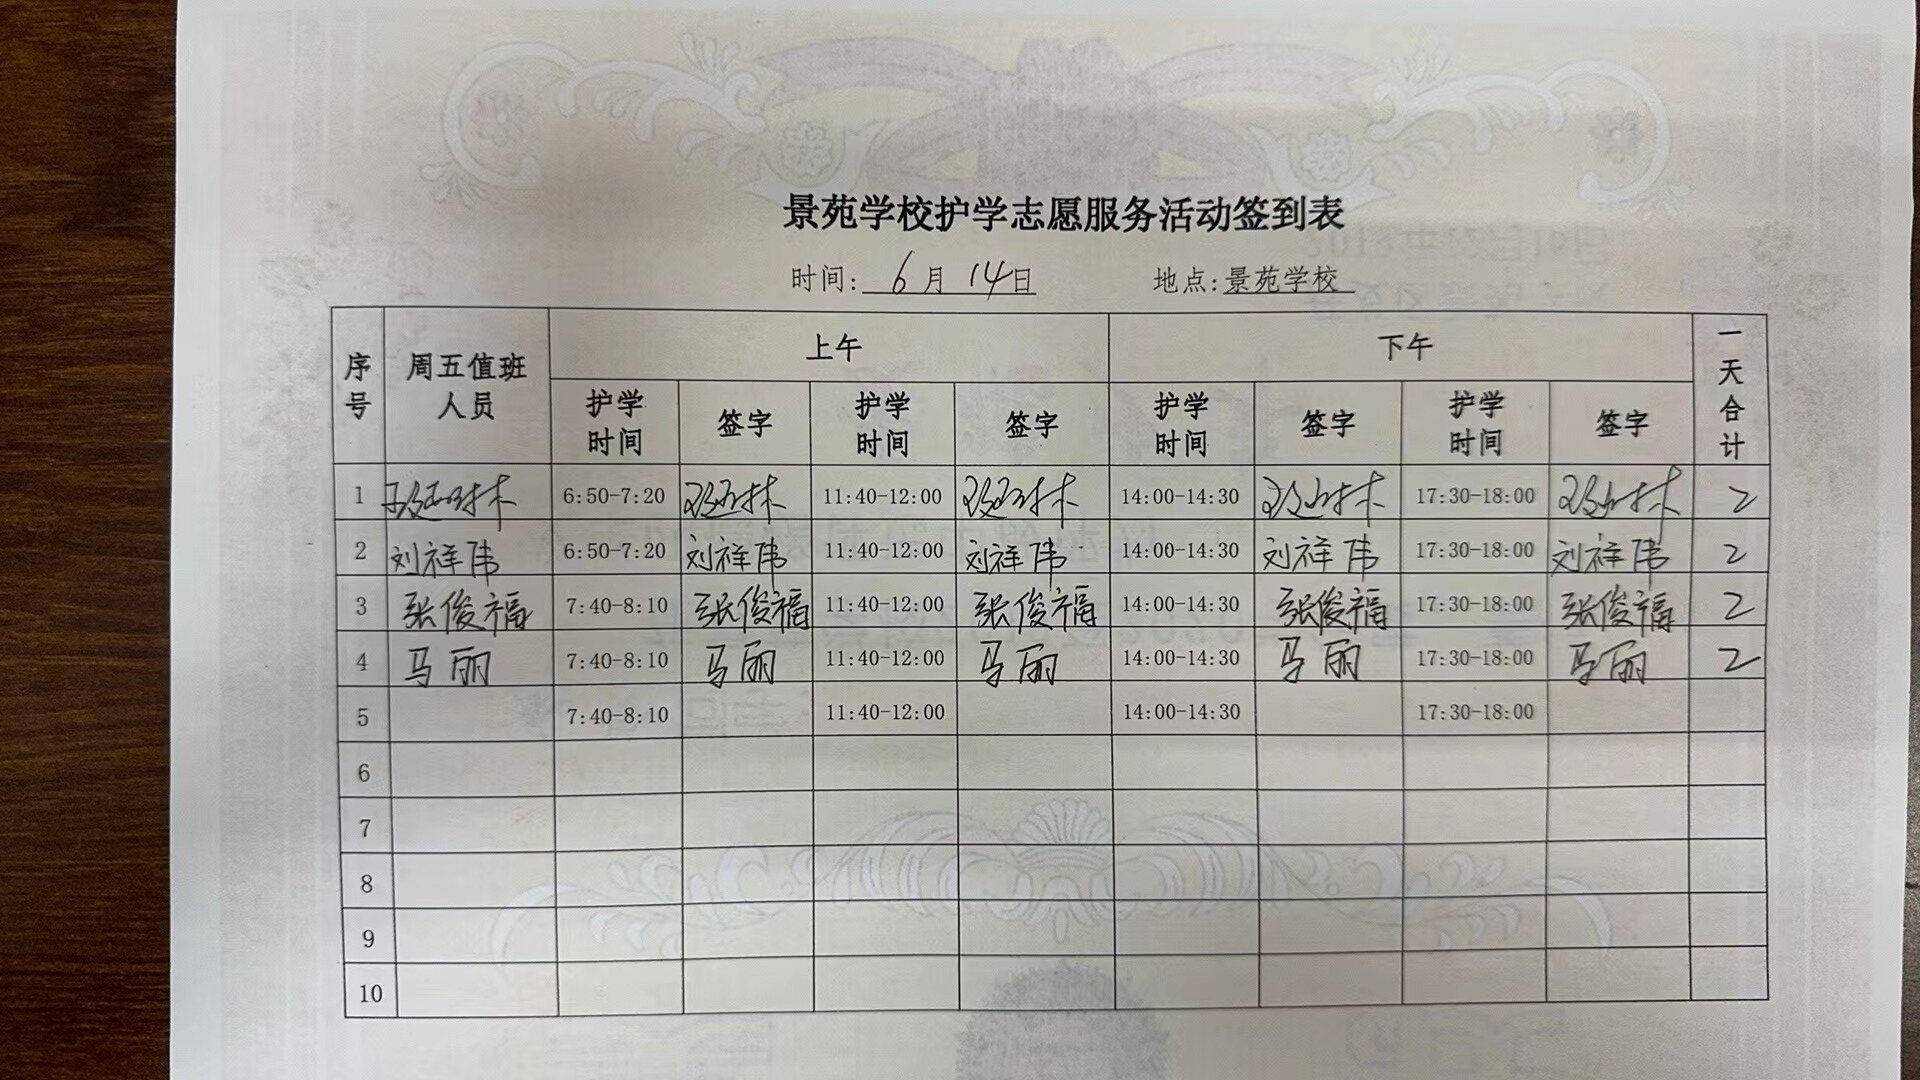 景苑学校护学志愿服务活动签到表
时间: 6月14日 地点:景苑学校
序号 周五值班人员 上午 下午 一天合计
护学时间 签字 护学时间 签字 护学时间 签字 护学时间 签字
1 6:50-7:20 11:40-12:00 14:00-14:30 17:30-18:00 2
2 刘祥伟 6:50-7:20 刘祥伟 11:40-12:00 刘祥伟 14:00-14:30 刘祥伟 17:30-18:00 刘祥伟 2
3 张俊福 7:40-8:10 张俊福 11:40-12:00 张俊福 14:00-14:30 张俊福 17:30-18:00 张俊福 2
4 马丽 7:40-8:10 马丽 11:40-12:00 马丽 14:00-14:30 马丽 17:30-18:00 马丽 2
5 7:40-8:10 11:40-12:00 14:00-14:30 17:30-18:00
6
7
8
9
10